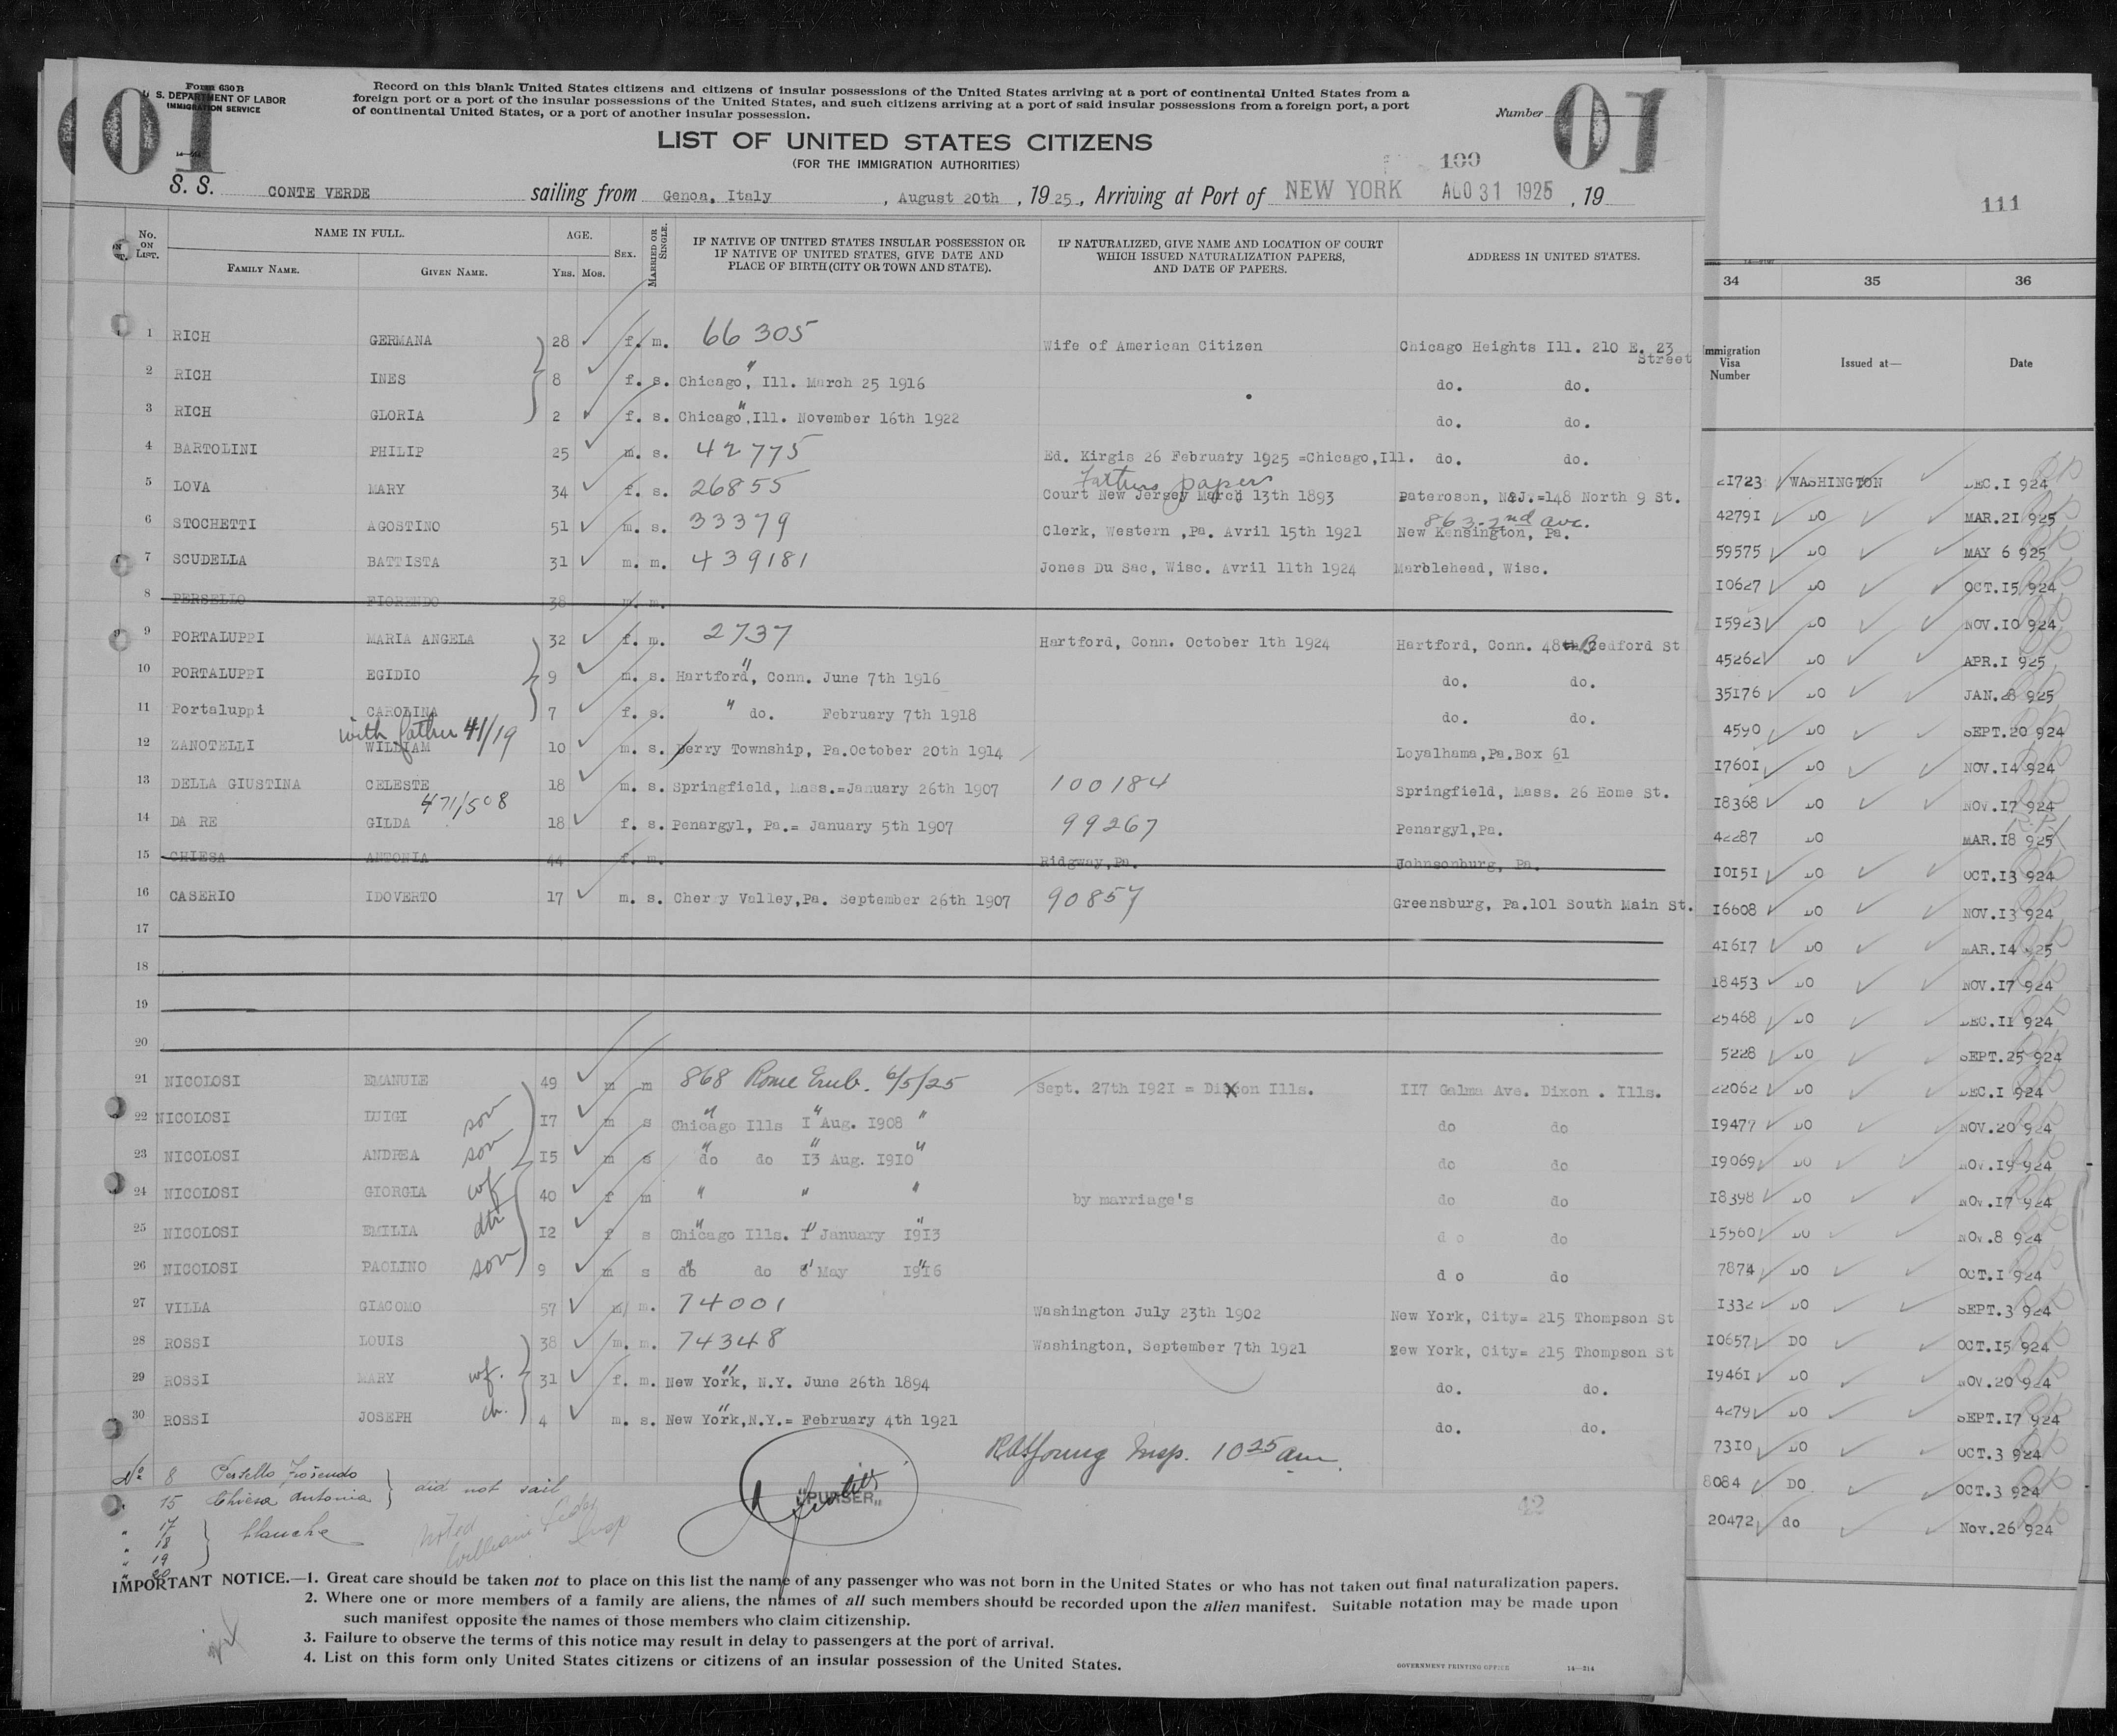 01
Form 630 B
U. S. DEPARTMENT OF LABOR
IMMIGRATION SERVICE
Record on this blank United States citizens and citizens of insular possessions of the United States arriving at a port of continental United States from a
foreign port or a port of the insular possessions of the United States, and such citizens arriving at a port of said insular possessions from a foreign port, a port
of continental United States, or a port of another insular possession.
Number
01
LIST OF UNITED STATES CITIZENS
(FOR THE IMMIGRATION AUTHORITIES)
100
S. S. CONTE VERDE sailing from Genoa, Italy , August 20th , 1925, Arriving at Port of NEW YORK AUG 31 1925 , 19
No. ON LIST. NAME IN FULL. FAMILY NAME. GIVEN NAME. AGE. YRS. MOS. SEX. MARRIED OR SINGLE. IF NATIVE OF UNITED STATES INSULAR POSSESSION OR IF NATIVE OF UNITED STATES, GIVE DATE AND PLACE OF BIRTH (CITY OR TOWN AND STATE). IF NATURALIZED, GIVE NAME AND LOCATION OF COURT WHICH ISSUED NATURALIZATION PAPERS, AND DATE OF PAPERS. ADDRESS IN UNITED STATES.
1 RICH GERMANA 28 f. m. 66305 Wife of American Citizen Chicago Heights Ill. 210 E. 23 Street
2 RICH INES 8 f. s. Chicago, Ill. March 25 1916 do. do.
3 RICH GLORIA 2 f. s. Chicago, Ill. November 16th 1922 do. do.
4 BARTOLINI PHILIP 25 m. s. 42775 Ed. Kirgis 26 February 1925 =Chicago,Ill. do. do.
Fathers papers
5 LOVA MARY 34 f. s. 26855 Court New Jersey March 13th 1893 Pateroson, N.J.=148 North 9 St.
863-2nd ave.
6 STOCHETTI AGOSTINO 51 m. s. 33379 Clerk, Western ,Pa. Avril 15th 1921 New Kensington, Pa.
7 SCUDELLA BATTISTA 31 m. m. 439181 Jones Du Sac, Wisc. Avril 11th 1924 Marblehead, Wisc.
8 PERSELLO FIORENDO 38 m. m.
9 PORTALUPPI MARIA ANGELA 32 f. m. 2737 Hartford, Conn. October 1th 1924 Hartford, Conn. 48 Bedford St
10 PORTALUPPI EGIDIO 9 m. s. Hartford, Conn. June 7th 1916 do. do.
11 Portaluppi CAROLINA 7 f. s. " do. February 7th 1918 do. do.
with father 41/19
12 ZANOTELLI WILLIAM 10 m. s. Derry Township, Pa.October 20th 1914 Loyalhama,Pa.Box 61
13 DELLA GIUSTINA CELESTE 18 m. s. Springfield, Mass.=January 26th 1907 100184 Springfield, Mass. 26 Home St.
471/508
14 DA RE GILDA 18 f. s. Penargyl, Pa.= January 5th 1907 99267 Penargyl,Pa.
15 CHIESA ANTONIA 44 f. m. Ridgway,Pa. Johnsonburg, Pa.
16 CASERIO IDOVERTO 17 m. s. Cherry Valley,Pa. September 26th 1907 90857 Greensburg, Pa.101 South Main St.
17
18
19
20
21 NICOLOSI EMANUIE 49 m m 868 Rome Emb. 6/5/25 Sept. 27th 1921 = Dixon Ills. 117 Galma Ave. Dixon . Ills.
22 NICOLOSI LUIGI son 17 m s Chicago Ills 1 Aug. 1908 " do do
23 NICOLOSI ANDREA son 15 m s do do 13 Aug. 1910 " do do
24 NICOLOSI GIORGIA wf 40 f m " " " by marriage's do do
25 NICOLOSI EMILIA dtr 12 f s Chicago Ills. 1 January 1913 do do
26 NICOLOSI PAOLINO son 9 m s do do 8 May 1916 do do
27 VILLA GIACOMO 57 m m. 74001 Washington July 23th 1902 New York, City= 215 Thompson St
28 ROSSI LOUIS 38 m. m. 74348 Washington, September 7th 1921 New York, City= 215 Thompson St
29 ROSSI MARY wf. 31 f. m. New York, N.Y. June 26th 1894 do. do.
30 ROSSI JOSEPH ch. 4 m. s. New York,N.Y.= February 4th 1921 do. do.
Insp. 10 25 am.
No 8 Persello Fiorendo
" 15 Chiesa Antonia } did not sail
" 17
" 18
" 19
" 20
} blanche
noted
William Insp
"PURSER"
42
IMPORTANT NOTICE.—1. Great care should be taken not to place on this list the name of any passenger who was not born in the United States or who has not taken out final naturalization papers.
2. Where one or more members of a family are aliens, the names of all such members should be recorded upon the alien manifest. Suitable notation may be made upon
such manifest opposite the names of those members who claim citizenship.
3. Failure to observe the terms of this notice may result in delay to passengers at the port of arrival.
4. List on this form only United States citizens or citizens of an insular possession of the United States.
GOVERNMENT PRINTING OFFICE 14—214
111
34 35 36
Immigration Visa Number Issued at— Date
21723 WASHINGTON DEC.1 924
42791 DO MAR.21 925
59575 DO MAY 6 925
10627 DO OCT.15 924
15923 DO NOV.10 924
45262 DO APR.1 925
35176 DO JAN.28 925
4590 DO SEPT.20 924
17601 DO NOV.14 924
18368 DO NOV.17 924
42287 DO MAR.18 925
10151 DO OCT.13 924
16608 DO NOV.13 924
41617 DO MAR.14 925
18453 DO NOV.17 924
25468 DO DEC.11 924
5228 DO SEPT.25 924
22062 DO DEC.1 924
19477 DO NOV.20 924
19069 DO NOV.19 924
18398 DO NOV.17 924
15560 DO NOV.8 924
7874 DO OCT.1 924
1332 DO SEPT.3 924
10657 DO OCT.15 924
19461 DO NOV.20 924
4279 DO SEPT.17 924
7310 DO OCT.3 924
8084 DO OCT.3 924
20472 do Nov.26 924